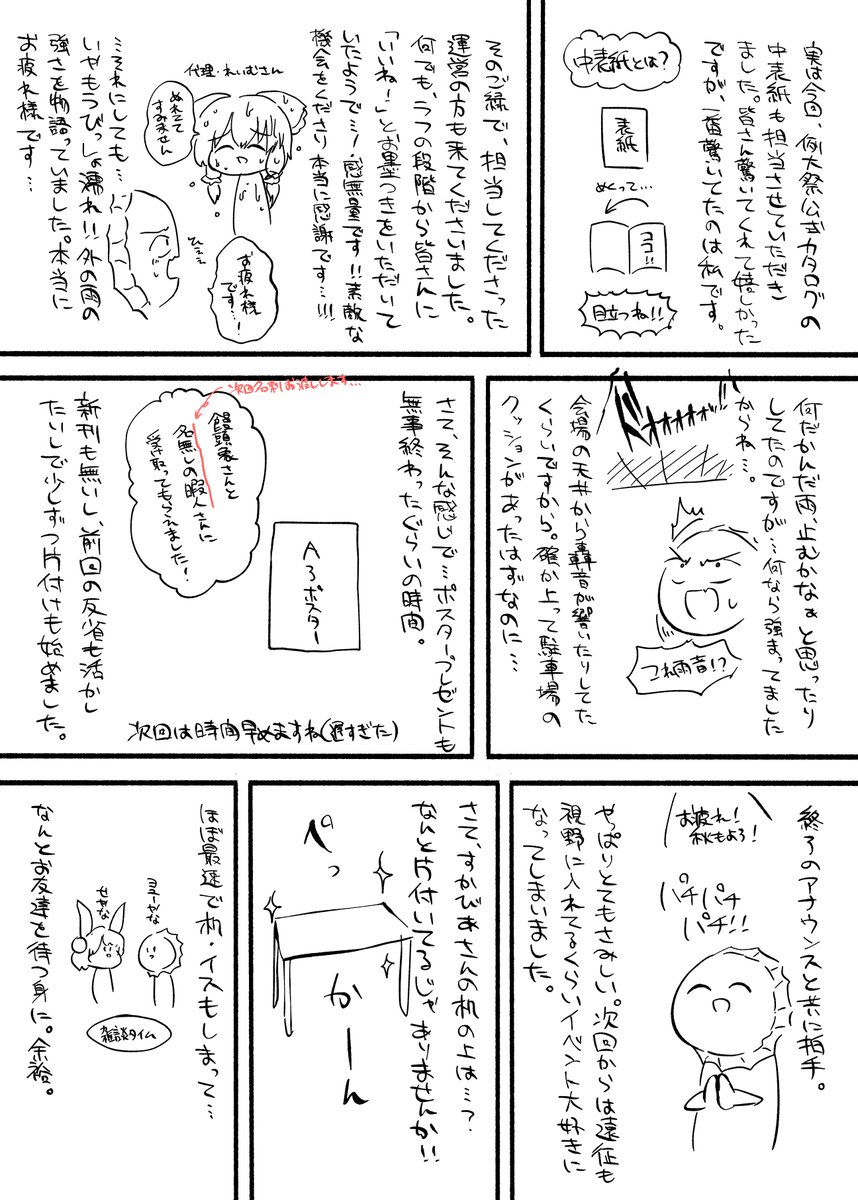 実は今回、例大祭公式カタログの
中表紙も担当させていただき
ました。皆さん驚いてくれて嬉しかった
ですが、一番驚いてたのは私です。
中表紙とは?
表紙
めくって…
ココ!!
目立つね!!
そのご縁で、担当してくださった
運営の方も来てくださいました。
何でも、ラフの段階から皆さんに
「いいね!」とお墨つきをいただいて
いたようで…!感無量です!!素敵な
機会をくださり本当に感謝です…!!!
代理・れいむさん
ぬれてて
すみません
お疲れ様
です…!
ひえぇ
…それにしても…
いやもうびっしょ濡れ!!外の雨の
強さを物語っていました。本当に
お疲れ様です…
何だかんだ雨、止むかなぁと思ったり
してたのですが…何なら強まってました
からね…。
ドドオオオオ
これ雨音!?
会場の天井から轟音が響いたりしてた
くらいですから。確か上って駐車場の
クッションがあったはずなのに…
さて、そんな感じで…ポスタープレゼントも
無事終わったぐらいの時間。
次回名刺お渡しします…
饅頭表さんと
名無しの暇人さんに
受け取ってもらえました!
A3ポスター
次回は時間早めますね(遅すぎた)
新刊も無いし、前回の反省も活かし
たいしで少しずつ片付けも始めました。
終了のアナウンスと共に拍手。
お疲れ!
秋もよろ!
パチパチ
パチ!!
やっぱりとてもさみしい。次回からは遠征も
視野に入れてるくらいイベント大好きに
なってしまいました。
さて、すかびあさんの机の上は…?
なんと片付いてるじゃありませんか!!
ぺっ
かーん
ほぼ最速で机・イスもしまって…
ヨユーやな
せやな
雑談タイム
なんとお友達を待つ身に。余裕。